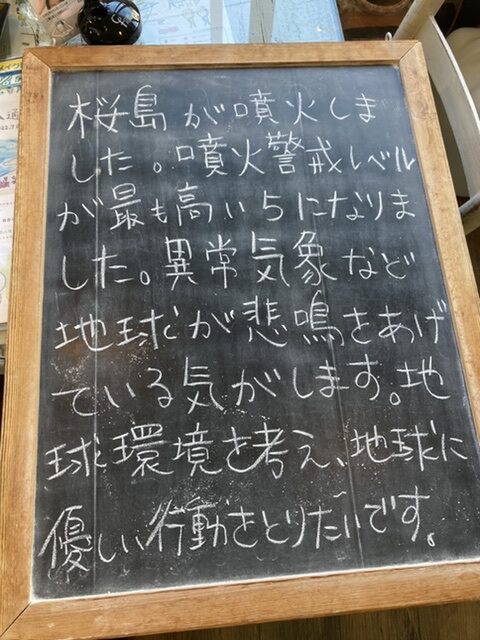 桜島が噴火しま
した。噴火警戒レベル
が最も高い5になりま
した。異常気象など
地球が悲鳴をあげ
ている気がします。地
球環境を考え、地球に
優しい行動をとりたいです。